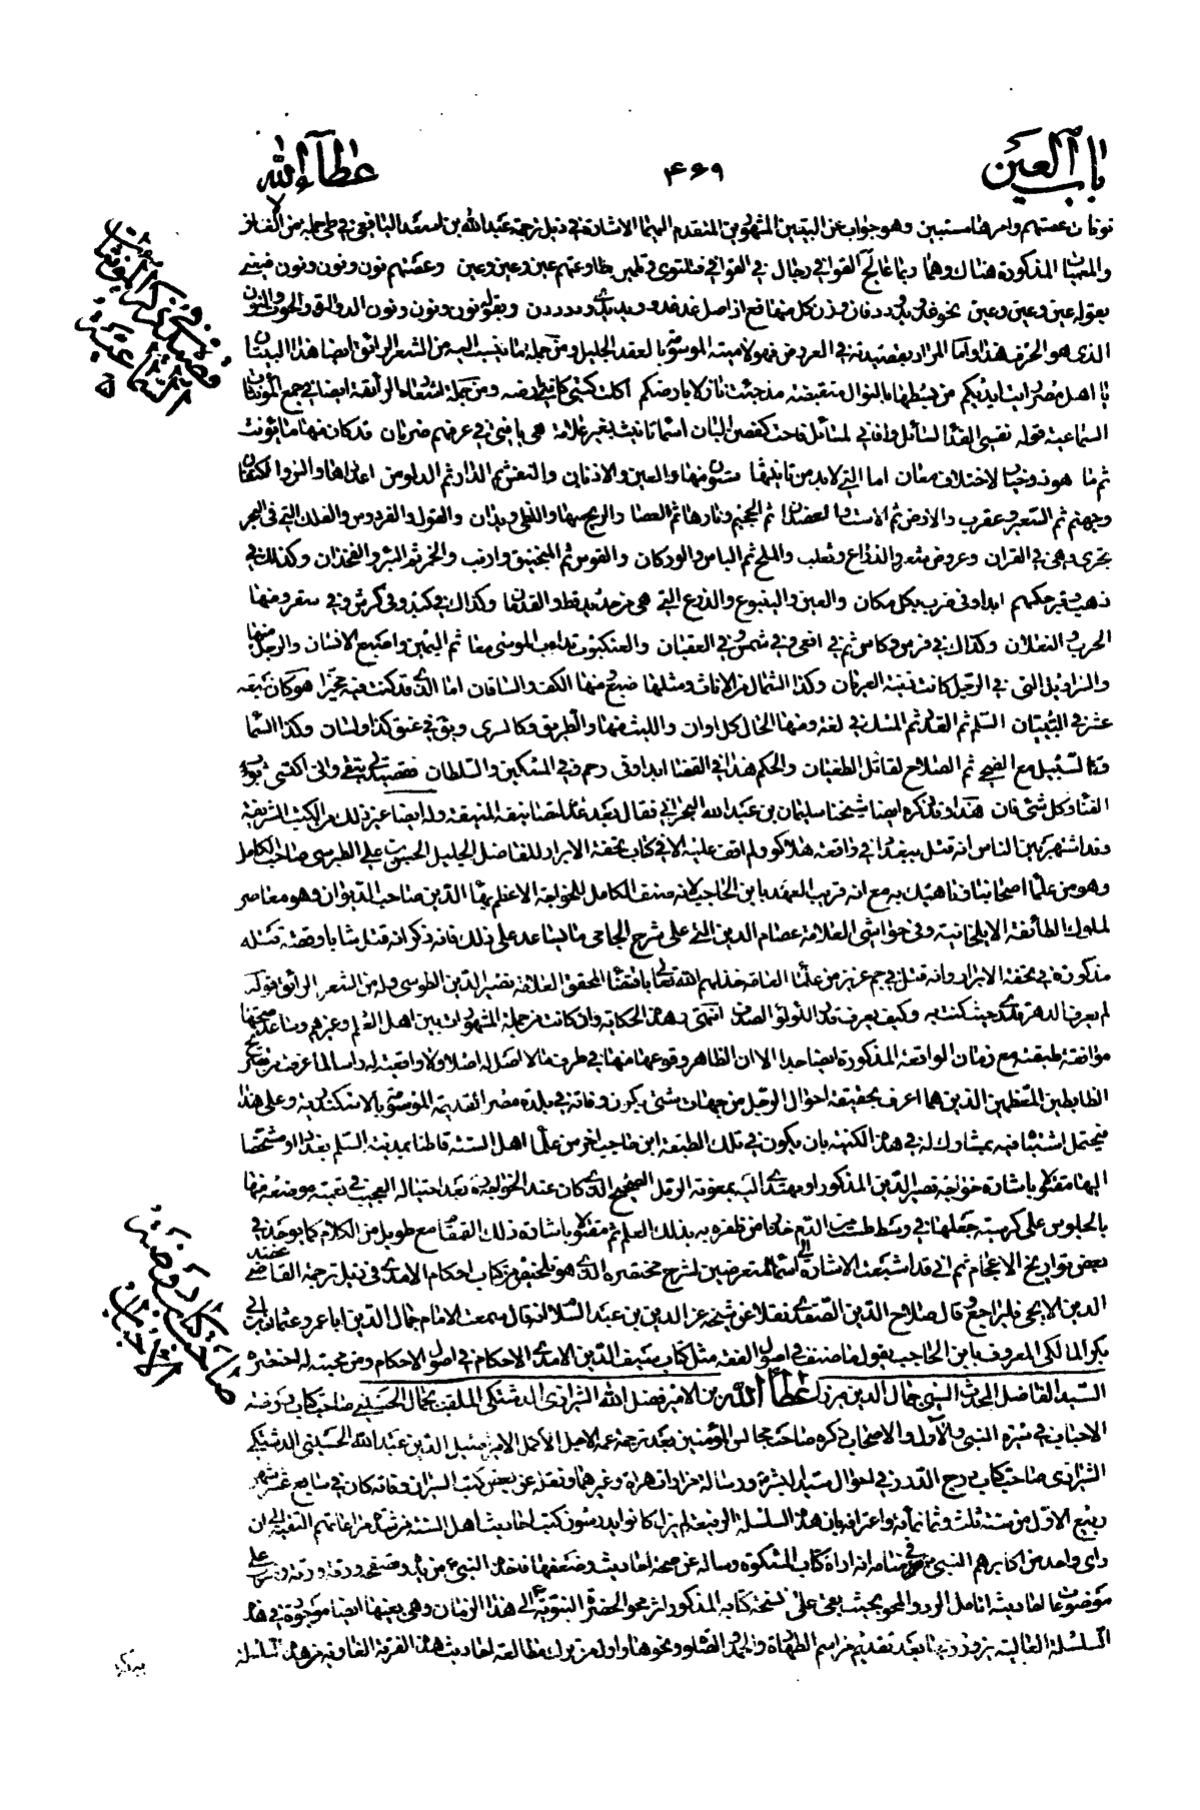 باب العين
۴۶۹
عطاء الله
وهو جواب عن البيتين المشهورين المتقدم اليهما الاشارة في ذيل ترجمة عبد الله بن اسعد اليافعي في طي جملة من الغاز
المذكورة هناك وهما ربما عالج القوافي رجال في القوافي فتلتوي وتلين طاوعتهم عين وعين وعين وعصتهم نون ونون ونون فيعني
بقوله عين وعين وعين نحو غد ويد ودد وبقوله نون ونون ونون الدواة والحوت والنون
الذي هو الحرف هذا واما المراد بقصيدته في العروض فهو لاميته الموسومة بالمقصد الجليل ومن جملة ما ينسب اليه من الشعر الرائق ايضا هذا البيتان
يا اهل مصر رايت ايديكم من بسطها بالنوال منقبضة مذ جئت نازلا بارضكم اكلت كتبي كانني ارضه ومن جملة اشعاره الرائقة ايضا في جمع المؤنثات
السماعية قوله نفسي الفداء لسائل وافاني لمسائل فاحت كغصن البان اسماء تانيث بغير علامة هي يا فتى في عرفهم ضربان قد كان منها ما يؤنث
ثم ما هو ذو خيار لاختلاف معان اما التي لابد من تانيثها ستون منها العين والاذنان والنفس ثم الدار ثم الدلو من اعدادها والسن والكتفان
وجهنم ثم السعير وعقرب والارض ثم الاست والعضدان ثم الجحيم ونارها ثم العصا والريح منها واللظى ويدان والغول والفردوس والفلك التي في البحر
تجري وهي في القران وعروض شعر والذراع وثعلب والملح ثم الفاس والوركان والقوس ثم المنجنيق وارنب والخمر ثم البئر والفخذان وكذاك في
ذهب وفهر حكمهم ابدا وفي ضرب بكل مكان والعين والينبوع والدرع التي هي من حديد قط والقدمان وكذاك في كبد وفي كرش وفي سقر ومنها
الحرب والنعلان وكذاك في فرس وكاس ثم في افعى وفي شمس وفي العقبان والعنكبوت تدب والموسى معا ثم اليمين واصبع الانسان والرجل منها
والسراويل التي في الرجل كانت زينة العريان وكذا الشمال من الاناث ومثلها ضبع ومنها الكف والساقان اما الذي قد كنت فيه مخيرا هو كان سبعة
عشر في التبيان السلم ثم القدر ثم المسك في لغة ومنها الحال كل اوان والليث منها والطريق وكالسرى ويق في عنق كذا ولسان وكذا السماء
والسبيل مع الضحى ثم السلاح لقاتل الطعان والحكم هذا في القفا ابدا وفي رحم وفي السكين والسلطان فقصيدتي تبقى واني اكتسي ثوب
الفناء وكل شيء فان هذا وقد ذكره ايضا شيخنا سليمان بن عبد الله البحراني فقال بعد عد تصانيفه المنيفة وله ايضا غير ذلك من الكتب الشريفة
وقد اشتهر بين الناس انه قتل ببغداد في واقعة هلاكو ولم اقف عليه الا في كتاب تحفة الابرار للفاضل الجليل الحسن بن علي الطبرسي صاحب الكامل
وهو من علماء اصحابنا وناهيك به مع انه قريب العهد بابن الحاجب لانه صنف الكامل للخواجة الاعظم بهاء الدين صاحب الديوان وهو معاصر
لملوك الطائفة الايلخانية وفي حواشي العلامة عصام الدين التي على شرح الجامي ما يساعد على ذلك فانه ذكر انه قتل شابا وقصة قتله
مذكورة في تحفة الابرار وانه قتل في جم غزير من علماء العامة خذلهم الله تعالى بافتاء المحقق العلامة نصير الدين الطوسي وله من الشعر الرائق قوله
لم يعرف الدهر قدري حيث كنت به وكيف يعرف قدر اللؤلؤ الصدف انتهى وهذه الحكاية وان كانت من جملة المشهورات بين اهل العلم وغيرهم ويساعد صحتها
موافقة طبقته مع زمان الواقعة المذكورة ايضا جدا الا ان الظاهر وقوعها منها في طرف ما لا اصل له اصلا ولا واقعية له راسا لما عرفت من تصريح
الضابطين المتقدمين الذين هما اعرف بحقيقة احوال الرجل من جهات شتى بكون وفاته في بلدة مصر القديمة الموسومة بالاسكندرية وعلى هذا
فيحتمل اشتباهه بمشارك له في هذه الكنية بان يكون في تلك الطبقة ابن حاجب اخر من علماء اهل السنة قاطنا بمدينة السلم بغداد ومشخصا
اليها مقتولا باشارة خواجه نصير الدين المذكور او مهتدى اليه بمعونة الرمل الصحيح الذي كان عند الخواجة بعد احتياله العجيب في تعمية موضعه منها
بالجلوس على كرسية جعلها في وسط طست من الدم خوفا من ظفره به بذلك العلم ثم مقتولا باشارة ذلك القمقام مع طويل من الكلام كما يوجد في
بعض تواريخ الاعجام ثم اني قد اشبعت الاشارة الى اسماء المتعرضين لشرح مختصره الذي هو تلخيص من كتاب احكام الامدي في ذيل ترجمة القاضي عضد
الدين الايجي فليراجع وقال صلاح الدين الصفدي نقلا عن شيخه عز الدين بن عبد السلام انه قال سمعت الامام جمال الدين ابا عمرو عثمان بن ابي
بكر المالكي المعروف بابن الحاجب يقول ما صنف في اصول الفقه مثل كتاب سيف الدين الامدي الاحكام في اصول الاحكام ومن محبته له اختصره
السيد الفاضل المحدث النبي جمال الدين ميرزا عطاء الله بن الامير فضل الله الشيرازي الدشتكي الملقب بجمال الحسيني صاحب كتاب روضة
الاحباب في سيرة النبي والآل والاصحاب ذكره صاحب مجالس المؤمنين بعد ترجمة عمه الاجل الاكمل الامير سيد اصيل الدين عبد الله الحسيني الدشتكي
الشيرازي صاحب كتاب درج الدرر في احوال سيد البشر ورسالة مزارات هراة وغيرهما ونقله عن بعض كتب السير ان وفاته كان في سابع عشر شهر
ربيع الاول من سنة ثلث وثمانمائة واعترافه بان هذه السلسلة الرفيعة لم يزل كانوا يدرسون كتب احاديث اهل السنة مراعاتهم التقية الى ان
راى واحد من اكابرهم النبي في منامه انه اراه كتاب المشكوة وساله عن صحة احاديثه وضعفها فاخذه النبي من يده وصفحه ورقة ورقة على
موضوعات احاديثه انامل الرد والمحو بحيث بقى على نسخة كتابه المذكور اثر محو الحضرة النبوية الى هذا الزمان وهي بعينها ايضا موجودة في هذه
السلسلة العالية يزورونها بعد تقديم مراسم الطهارة والصلوة ونحوها واولد من ترك مطالعة احاديث هذه الفرقة الغاوية من هذه السلسلة
صاحب كتاب روضة
الاحباب